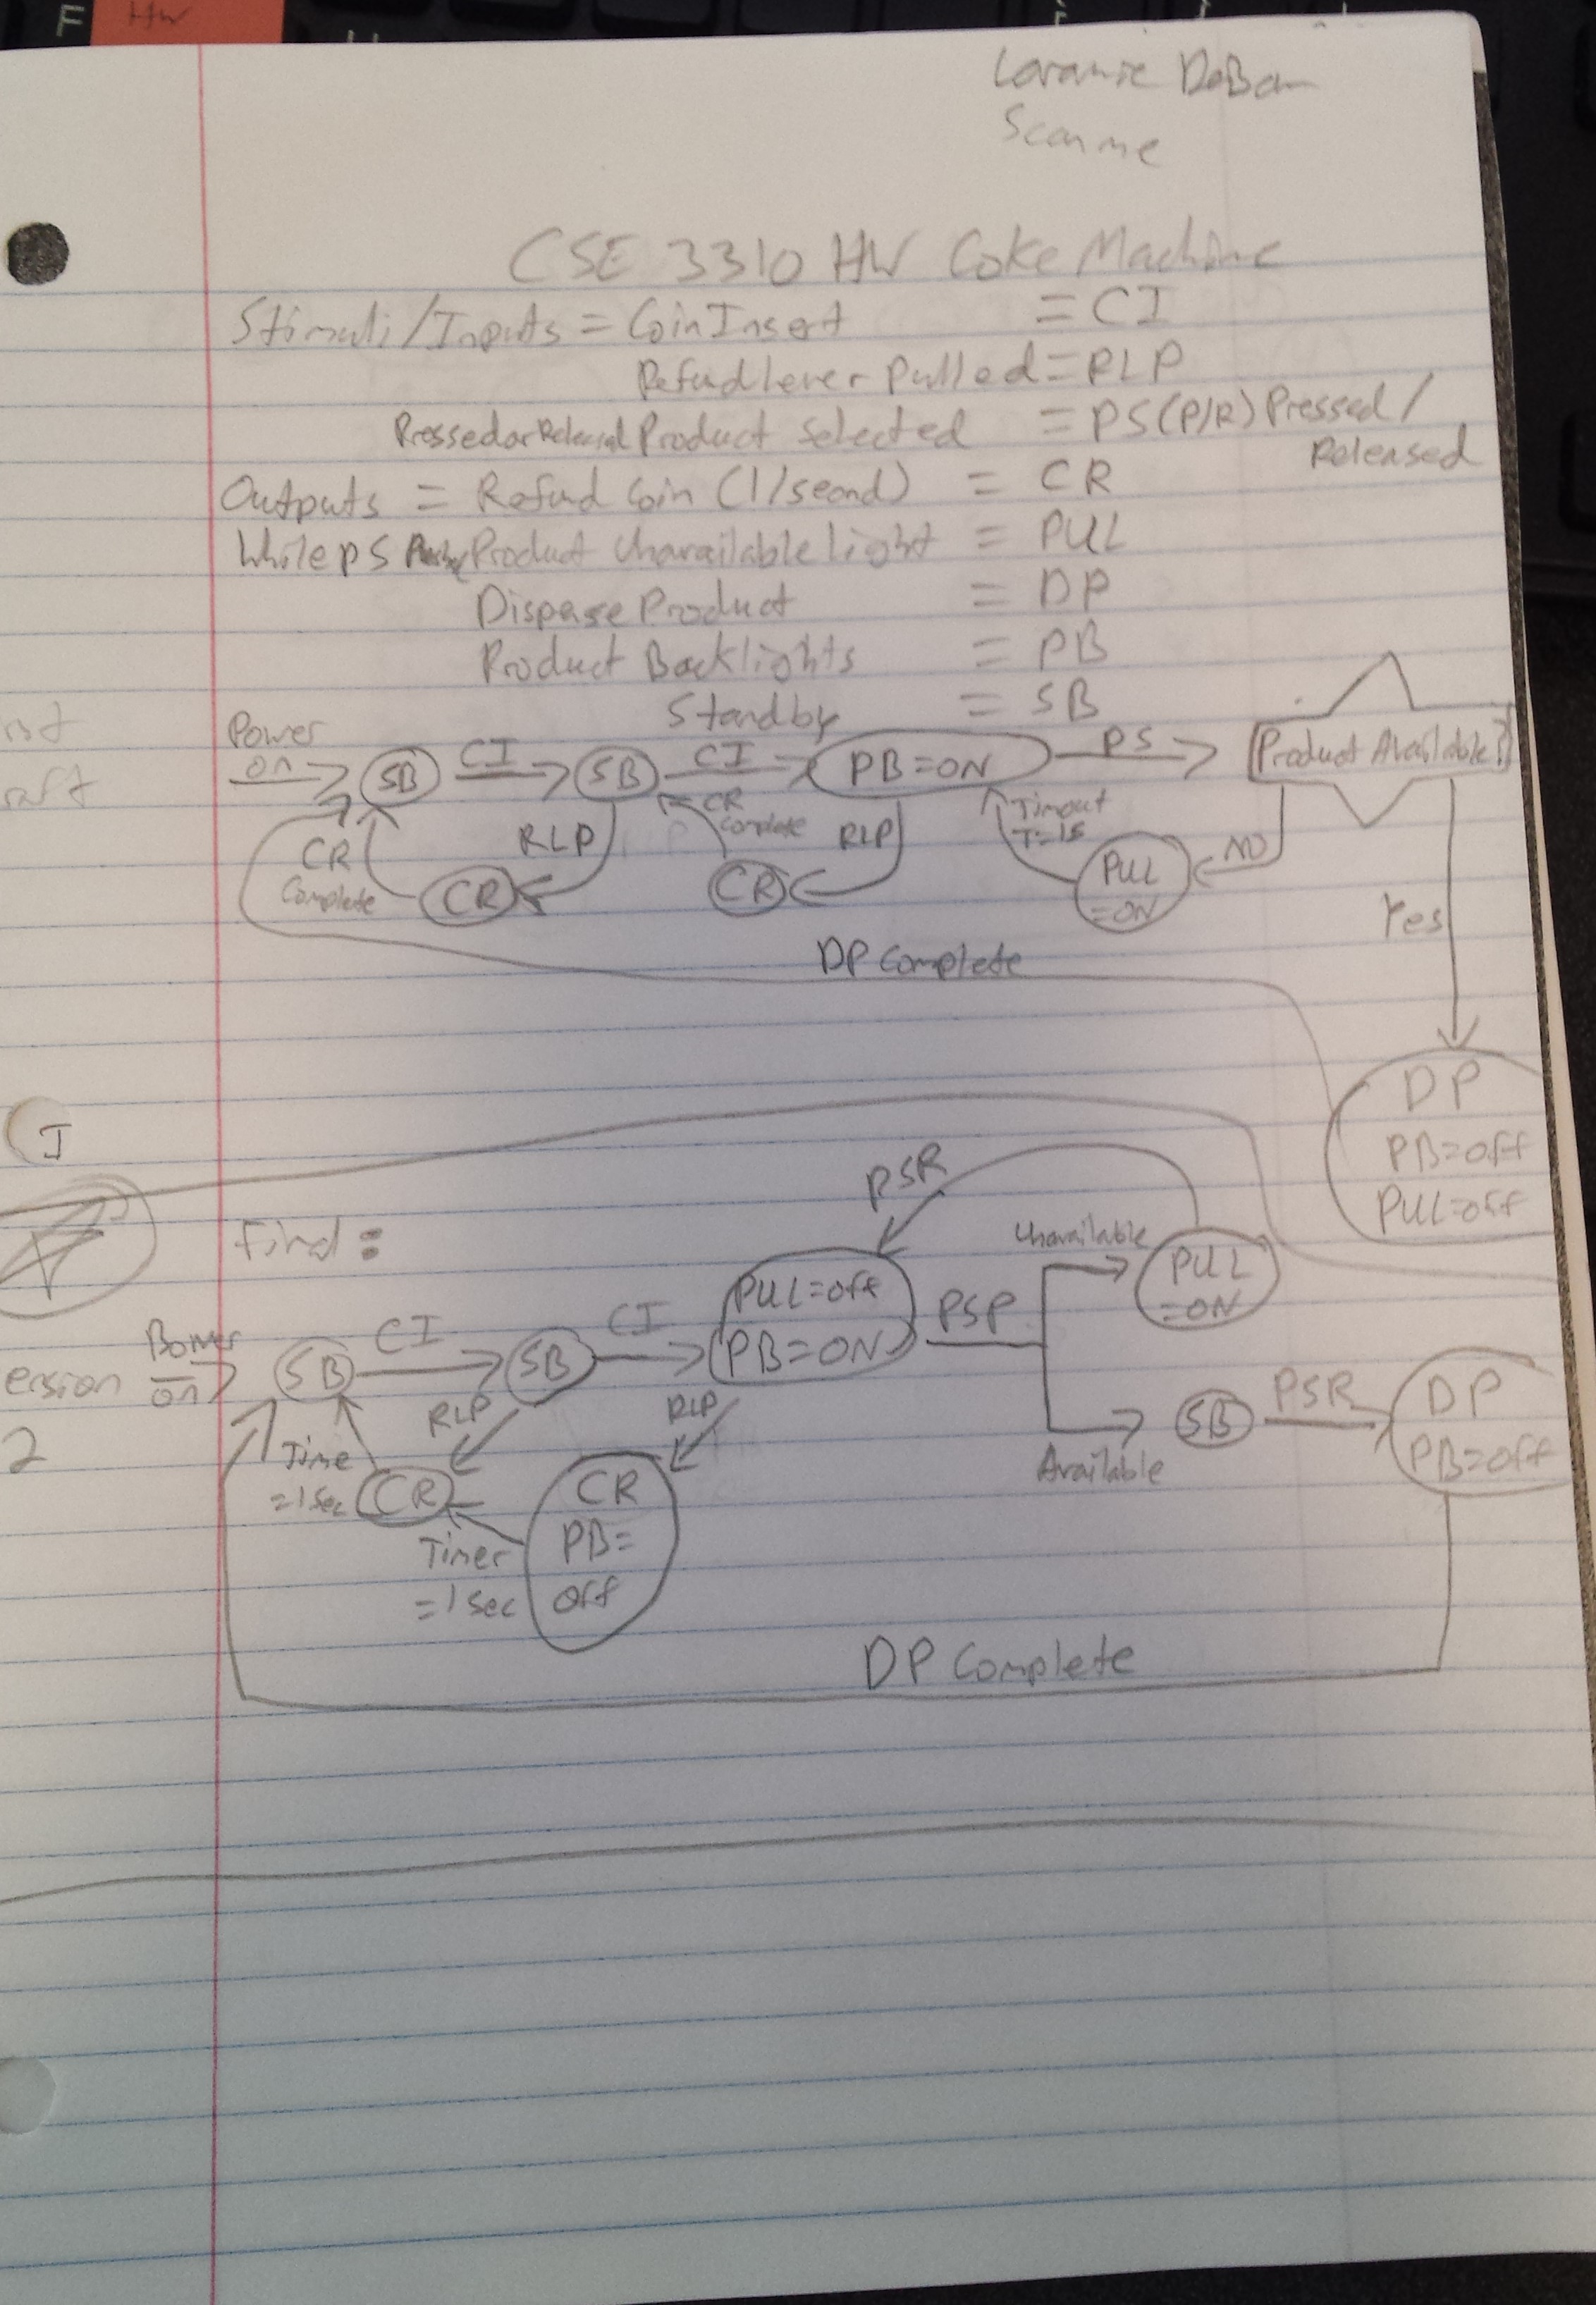 F
HW
Laramie
Scan me
CSE 3310 HW Coke Machine
Stimuli/Inputs = Coin Insert = CI
Refund Lever Pulled = RLP
Pressed or Released Product Selected = PS(P/R) Pressed/
Released
Outputs = Refund Coin (1/seond) = CR
While PS Product Unavailable light = PUL
Dispense Product = DP
Product Backlights = PB
Standby = SB
Power
on
SB
CI
SB
CI
PB=ON
PS
Product Available?
RLP
CR
CR
Complete
RLP
CR
CR
Complete
Timeout
T=1s
PUL
=ON
NO
Yes
DP Complete
DP
PB=off
PUL=off
I
Final:
ersion
2
Power
on
SB
CI
SB
CI
PUL=off
PB=ON
PSP
Unavailable
PUL
=ON
PSR
Available
SB
PSR
DP
PB=off
RLP
RLP
Time
=1sec
CR
Timer
=1sec
CR
PB=
off
DP Complete